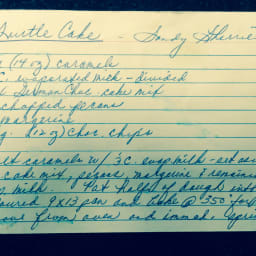 Turtle Cake - Sandy Sherrie
(14 oz) caramels
C. evaporated milk - divided
German Choc. cake mix
chopped pecans
margerine
g. (12 oz) Choc. chips
lt caramels w/ ⅓ C. evap milk - set asi
cake mix, pecans, margerine & remainin
milk. Pat half of dough into
oured 9X13 pan and bake @ 350° for
ove from oven and immed. sprin